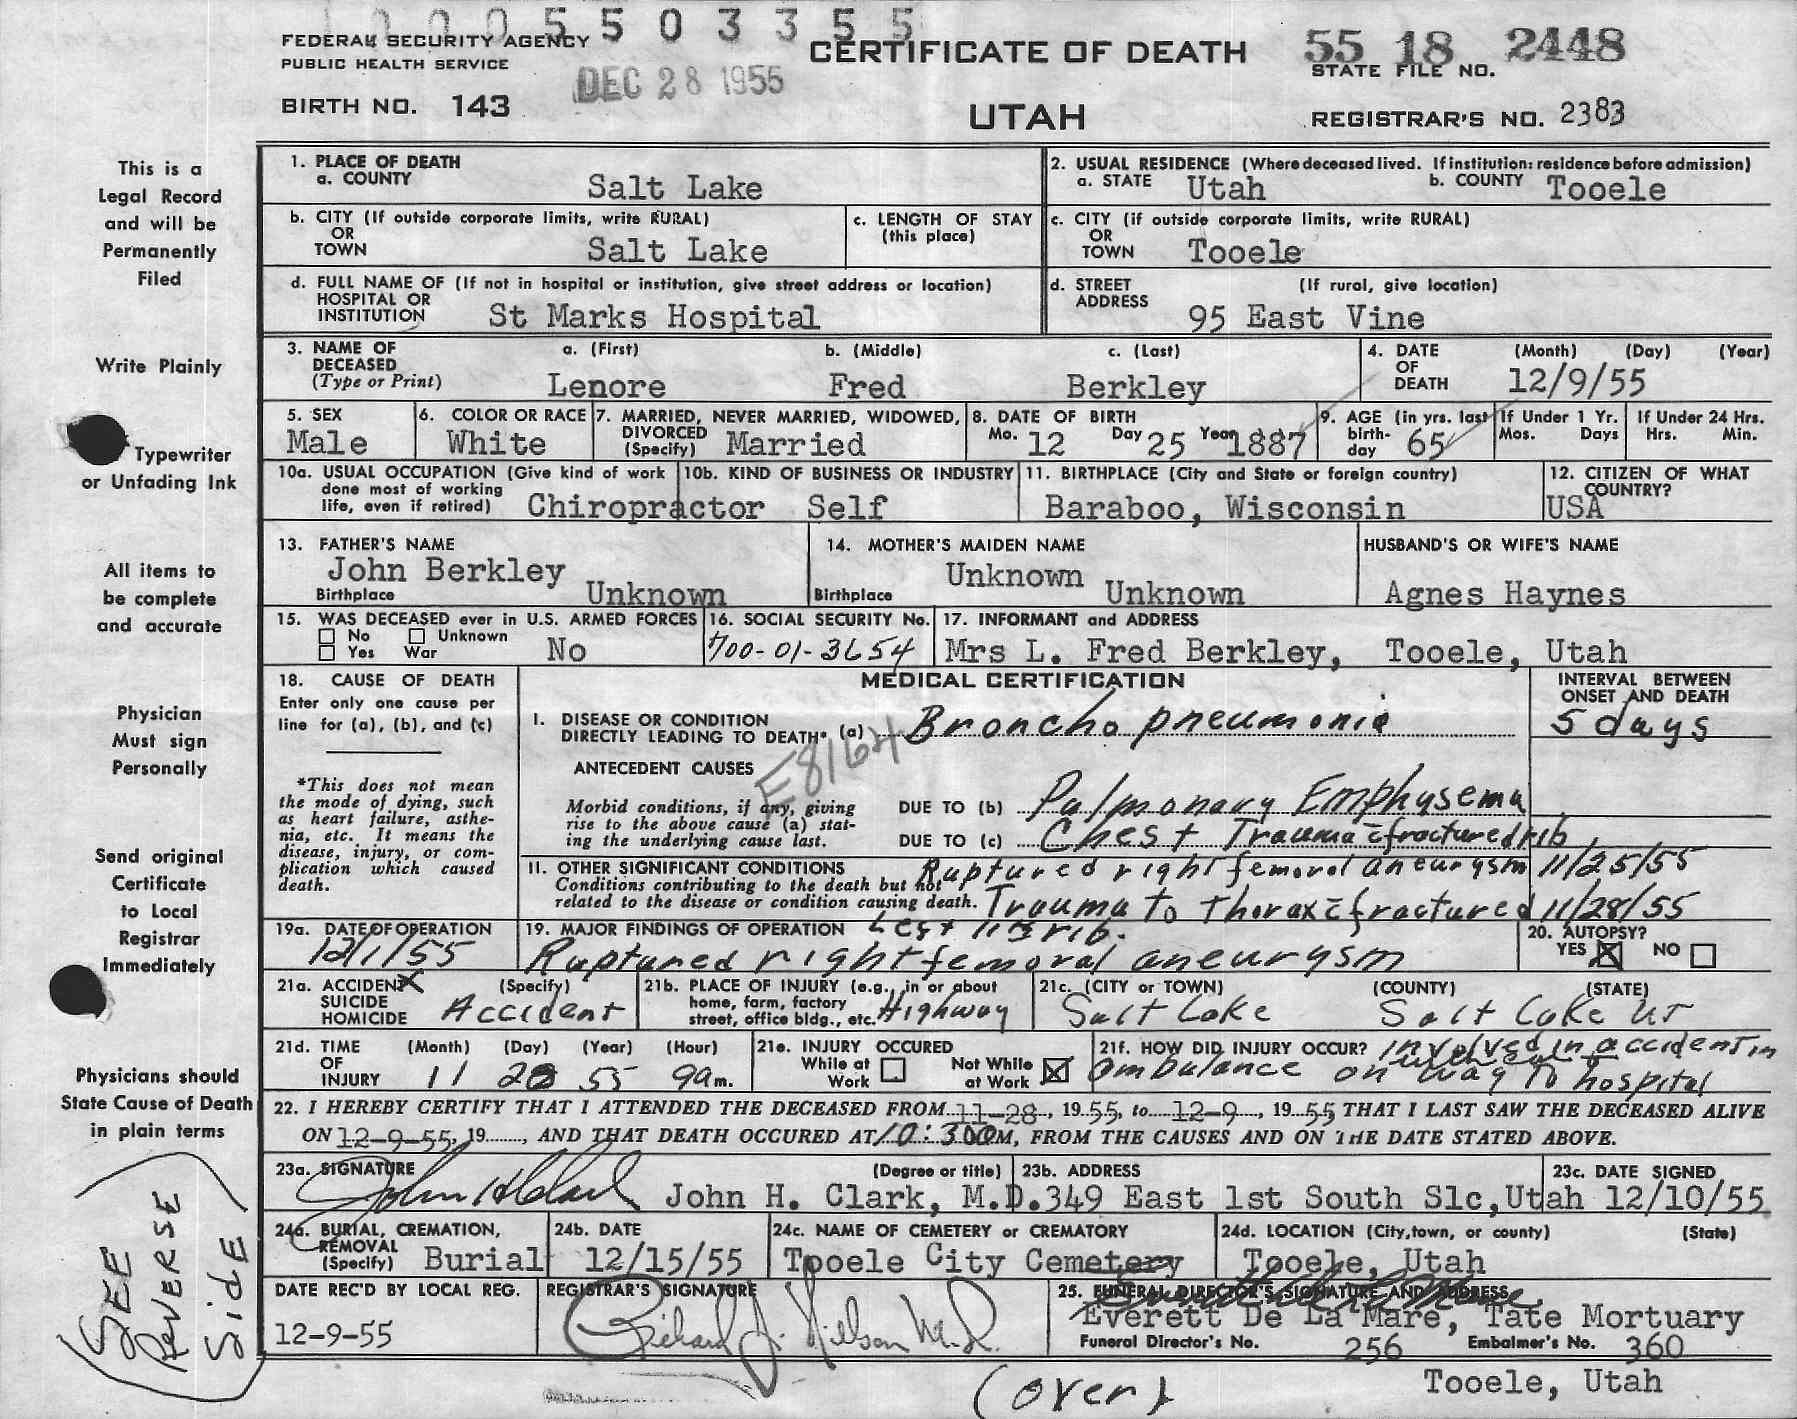 1000 5 5 0 3 3 5 5
FEDERAL SECURITY AGENCY
PUBLIC HEALTH SERVICE
DEC 28 1955
CERTIFICATE OF DEATH
55 18 2448
STATE FILE NO.
BIRTH NO. 143
UTAH
REGISTRAR'S NO. 2383
This is a
Legal Record
and will be
Permanently
Filed
Write Plainly
Typewriter
or Unfading Ink
All items to
be complete
and accurate
Physician
Must sign
Personally
Send original
Certificate
to Local
Registrar
Immediately
Physicians should
State Cause of Death
in plain terms
(SEE
REVERSE
SIDE)
1. PLACE OF DEATH
a. COUNTY Salt Lake
2. USUAL RESIDENCE (Where deceased lived. If institution: residence before admission)
a. STATE Utah b. COUNTY Tooele
b. CITY (If outside corporate limits, write RURAL)
OR
TOWN Salt Lake
c. LENGTH OF STAY
(this place)
c. CITY (if outside corporate limits, write RURAL)
OR
TOWN Tooele
d. FULL NAME OF (If not in hospital or institution, give street address or location)
HOSPITAL OR
INSTITUTION St Marks Hospital
d. STREET (If rural, give location)
ADDRESS
95 East Vine
3. NAME OF a. (First) b. (Middle) c. (Last)
DECEASED
(Type or Print) Lenore Fred Berkley
4. DATE (Month) (Day) (Year)
OF
DEATH 12/9/55
5. SEX
Male
6. COLOR OR RACE
White
7. MARRIED, NEVER MARRIED, WIDOWED,
DIVORCED
(Specify) Married
8. DATE OF BIRTH
Mo. 12 Day 25 Year 1887
9. AGE (in yrs. last
birth-
day 65
If Under 1 Yr.
Mos. Days
If Under 24 Hrs.
Hrs. Min.
10a. USUAL OCCUPATION (Give kind of work
done most of working
life, even if retired) Chiropractor
10b. KIND OF BUSINESS OR INDUSTRY
Self
11. BIRTHPLACE (City and State or foreign country)
Baraboo, Wisconsin
12. CITIZEN OF WHAT
COUNTRY?
USA
13. FATHER'S NAME
John Berkley
Birthplace Unknown
14. MOTHER'S MAIDEN NAME
Unknown
Birthplace Unknown
HUSBAND'S OR WIFE'S NAME
Agnes Haynes
15. WAS DECEASED ever in U.S. ARMED FORCES
No Unknown
Yes War No
16. SOCIAL SECURITY No.
700-01-3654
17. INFORMANT and ADDRESS
Mrs L. Fred Berkley, Tooele, Utah
18. CAUSE OF DEATH
Enter only one cause per
line for (a), (b), and (c)
*This does not mean
the mode of dying, such
as heart failure, asthe-
nia, etc. It means the
disease, injury, or com-
plication which caused
death.
MEDICAL CERTIFICATION
INTERVAL BETWEEN
ONSET AND DEATH
I. DISEASE OR CONDITION
DIRECTLY LEADING TO DEATH* (a) Bronchopneumonia 5 days
E8164
ANTECEDENT CAUSES
Morbid conditions, if any, giving
rise to the above cause (a) stat-
ing the underlying cause last.
DUE TO (b) Pulmonary Emphysema
DUE TO (c) Chest Trauma c fractured rib
II. OTHER SIGNIFICANT CONDITIONS
Conditions contributing to the death but not
related to the disease or condition causing death.
Ruptured right femoral aneurysm 11/25/55
Trauma to Thorax c fractured 11/28/55
Left 11th rib.
19a. DATE OF OPERATION
12/1/55
19. MAJOR FINDINGS OF OPERATION
Ruptured right femoral aneurysm
20. AUTOPSY?
YES X NO
21a. ACCIDENT X (Specify)
SUICIDE
HOMICIDE Accident
21b. PLACE OF INJURY (e.g., in or about
home, farm, factory
street, office bldg., etc. Highway
21c. (CITY or TOWN) (COUNTY) (STATE)
Salt Lake Salt Lake UT
21d. TIME (Month) (Day) (Year) (Hour)
OF
INJURY 11 28 55 9 a m.
21e. INJURY OCCURED
While at Not While
Work at Work X
21f. HOW DID INJURY OCCUR? Involved in accident in
ambulance on way to hospital
22. I HEREBY CERTIFY THAT I ATTENDED THE DECEASED FROM 11-28, 19 55, to 12-9, 19 55 THAT I LAST SAW THE DECEASED ALIVE
ON 12-9-55, 19......, AND THAT DEATH OCCURED AT 10:30 M, FROM THE CAUSES AND ON THE DATE STATED ABOVE.
23a. SIGNATURE (Degree or title)
John H Clark John H. Clark, M.D.
23b. ADDRESS
349 East 1st South Slc, Utah
23c. DATE SIGNED
12/10/55
24a. BURIAL, CREMATION,
REMOVAL
(Specify) Burial
24b. DATE
12/15/55
24c. NAME OF CEMETERY or CREMATORY
Tooele City Cemetery
24d. LOCATION (City, town, or county) (State)
Tooele, Utah
DATE REC'D BY LOCAL REG.
12-9-55
REGISTRAR'S SIGNATURE
Richard J. Nelson M.D.
25. FUNERAL DIRECTOR'S SIGNATURE AND ADDRESS
Everett De La Mare, Tate Mortuary
Funeral Director's No. 256 Embalmer's No. 360
Tooele, Utah
(over)